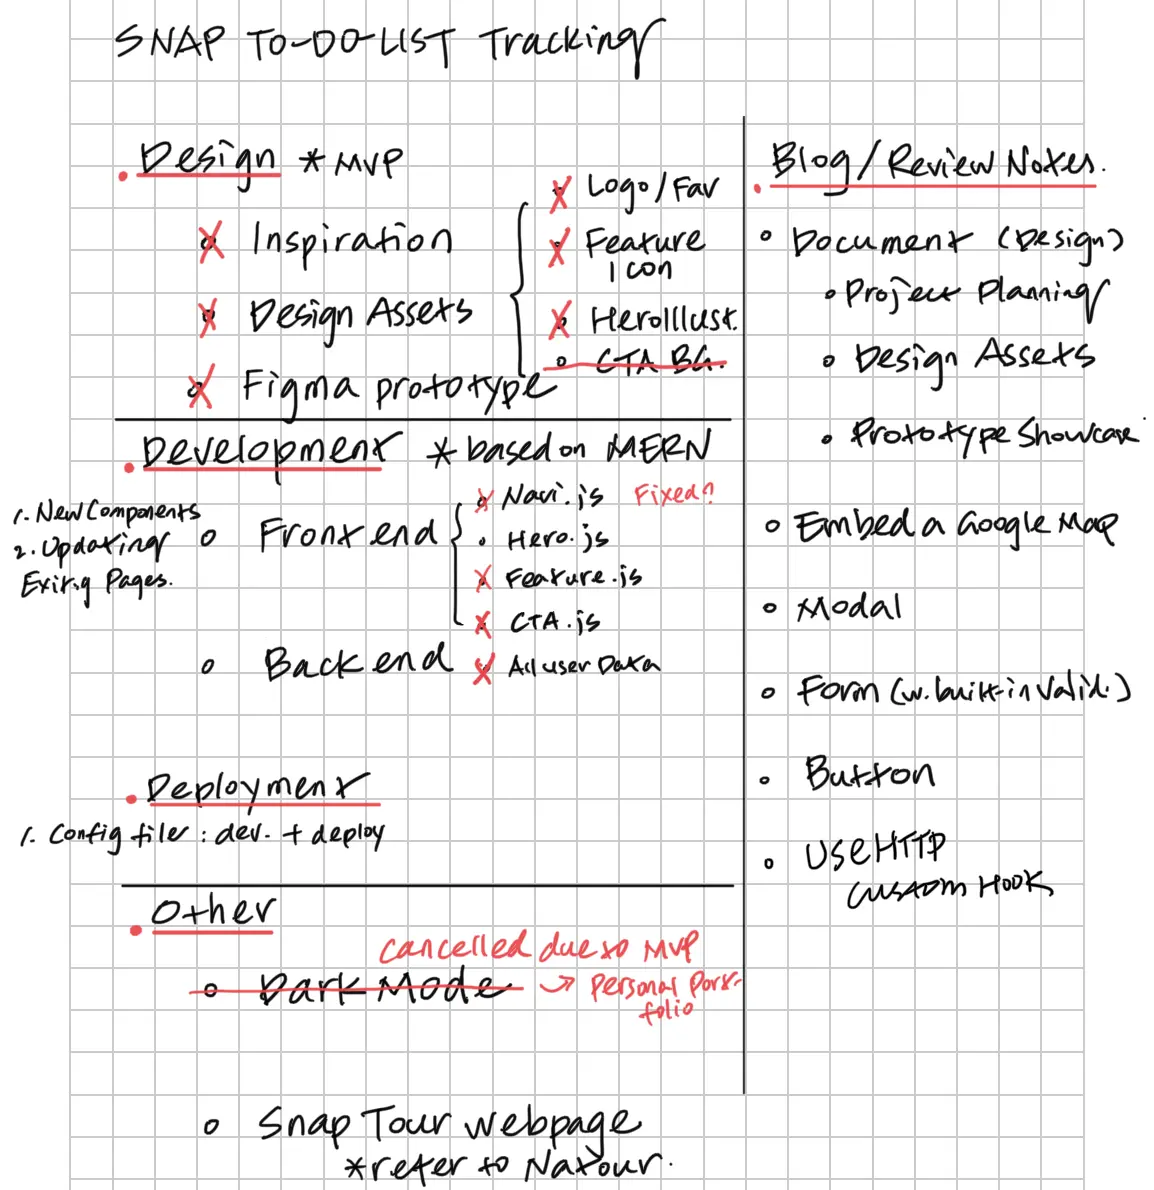 SNAP TO-DO-LIST Tracking
Design *MVP
Inspiration
Design Assets
Logo/Fav
Feature
Icon
HeroIllust.
CTA BG.
Figma prototype
Development *based on MERN
1. New Components
2. Updating
Exitig Pages.
Frontend
Navi.js Fixed?
Hero.js
Feature.js
CTA.js
Backend
All user Data
Deployment
1. Config file : dev. + deploy
Other
cancelled due to MVP
Dark Mode → Personal Port-
folio
Snap Tour webpage
*refer to Natour.
Blog/Review Notes.
Document (Design)
Project Planning
Design Assets
Prototype Showcase
Embed a Google Map
Modal
Form (w. built-in valid.)
Button
UseHTTP
custom HOOK